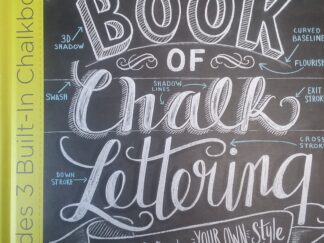 des 3 Built-In Chalkbo
BOOK
3D
SHADOW
CURVED
BASELINE
OF
FLOURISH
SHADOW
LINES
SWASH
EXIT
STROKE
Chalk
CROSS
STROKE
DOWN
STROKE
Lettering
YOUR OWN Style